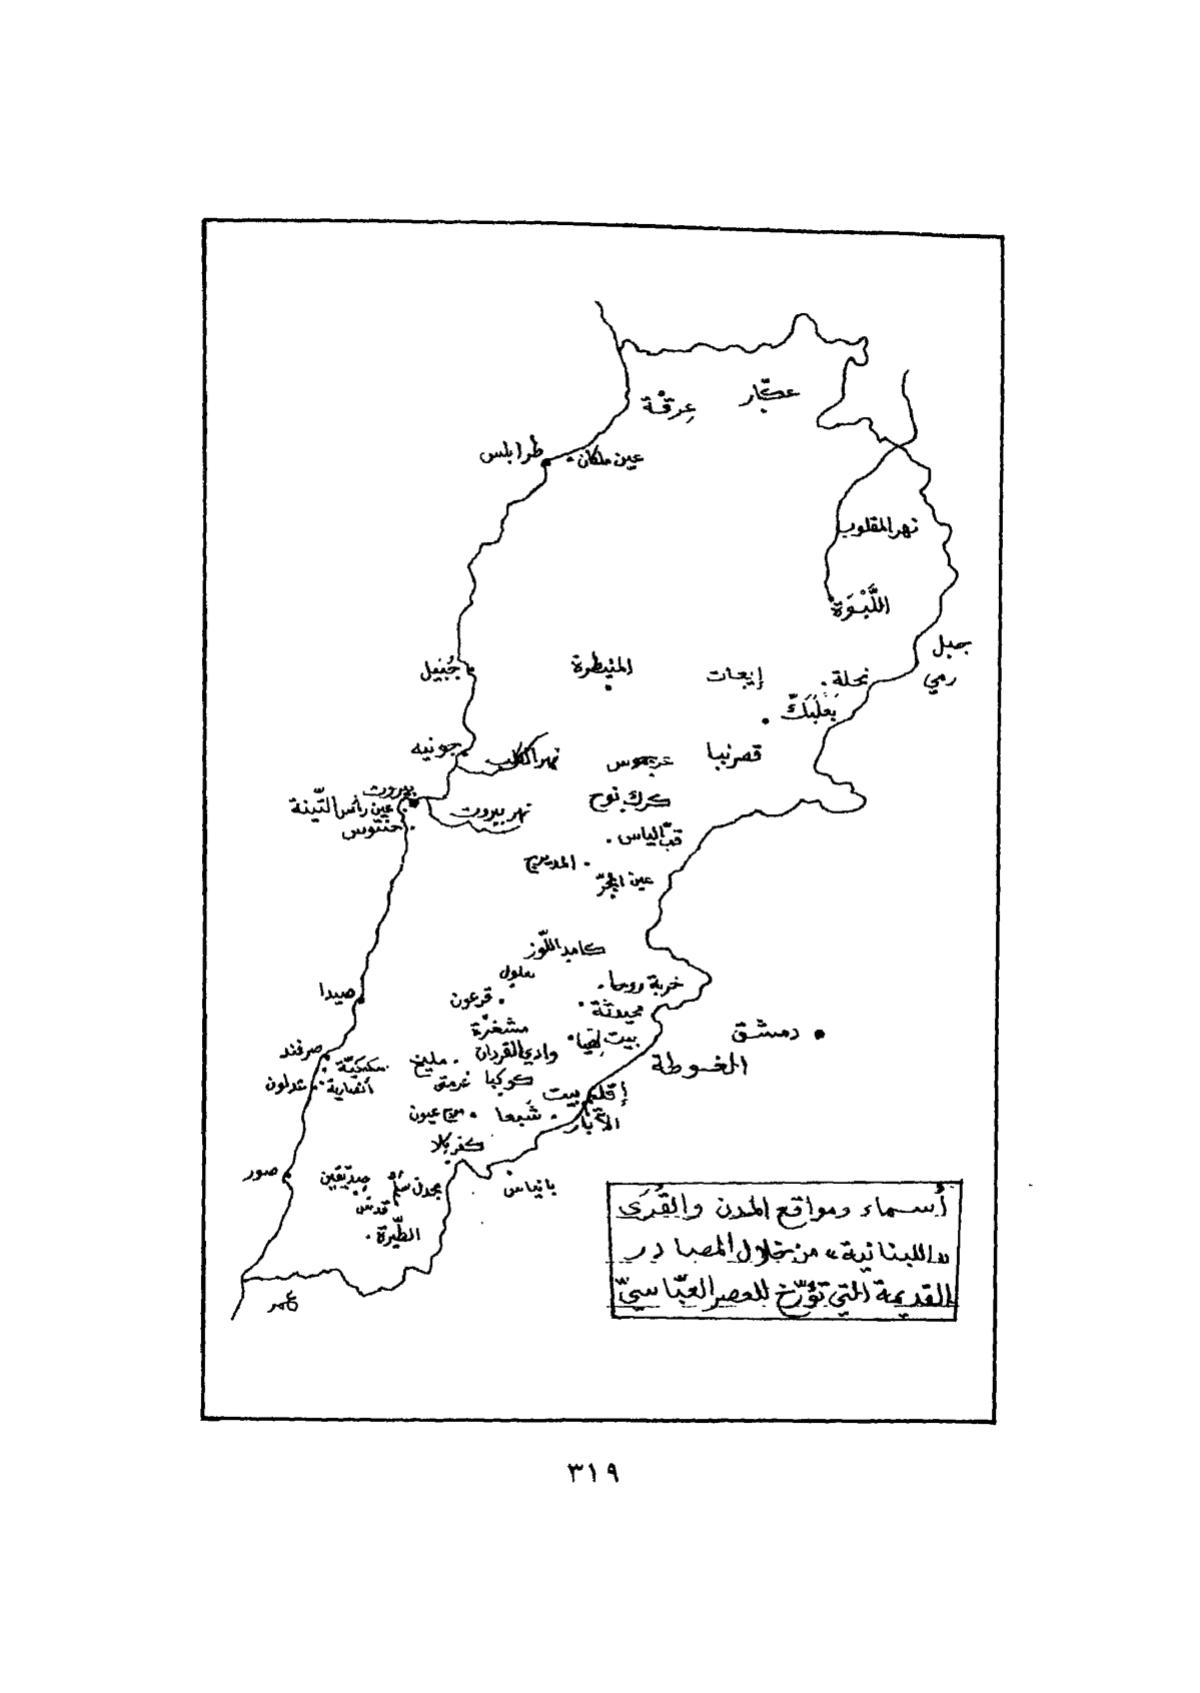 عكّار
عِرقْة
طرابلس
عين ملكان
نهر المقلوب
اللَّبْوَة
جبل
رمي
جُبَيل
المنيطرة
إيعات
نحلة
بَعْلَبَكّ
جونيه
نهر الكلب
عرجموس
قصرنبا
بيروت
عين رأس التّينة
نهر بيروت
كرك نوح
حنتوس
قبّ الياس
المديرج
عين الجرّ
كامد اللّوز
خربة روحا
قرعون
صيدا
مجيدثة
مشغرة
بيت لهيا
دمشق
الغوطة
صرفند
سكسكيّة
مليخ
وادي القردان
عدلون
أنصارية
عرمتى
كوكبا
إقليم بيت
الآبار
مرج عيون
شبعا
كفر كلا
صور
صدّيقين
مجدل سلم
بانياس
قدس
الطّيرة
أسماء ومواقع المدن والقُرَى
«اللبنانية» من خلال المصادر
القديمة التي تؤرّخ للعصر العبّاسيّ
عمر
٣١٩